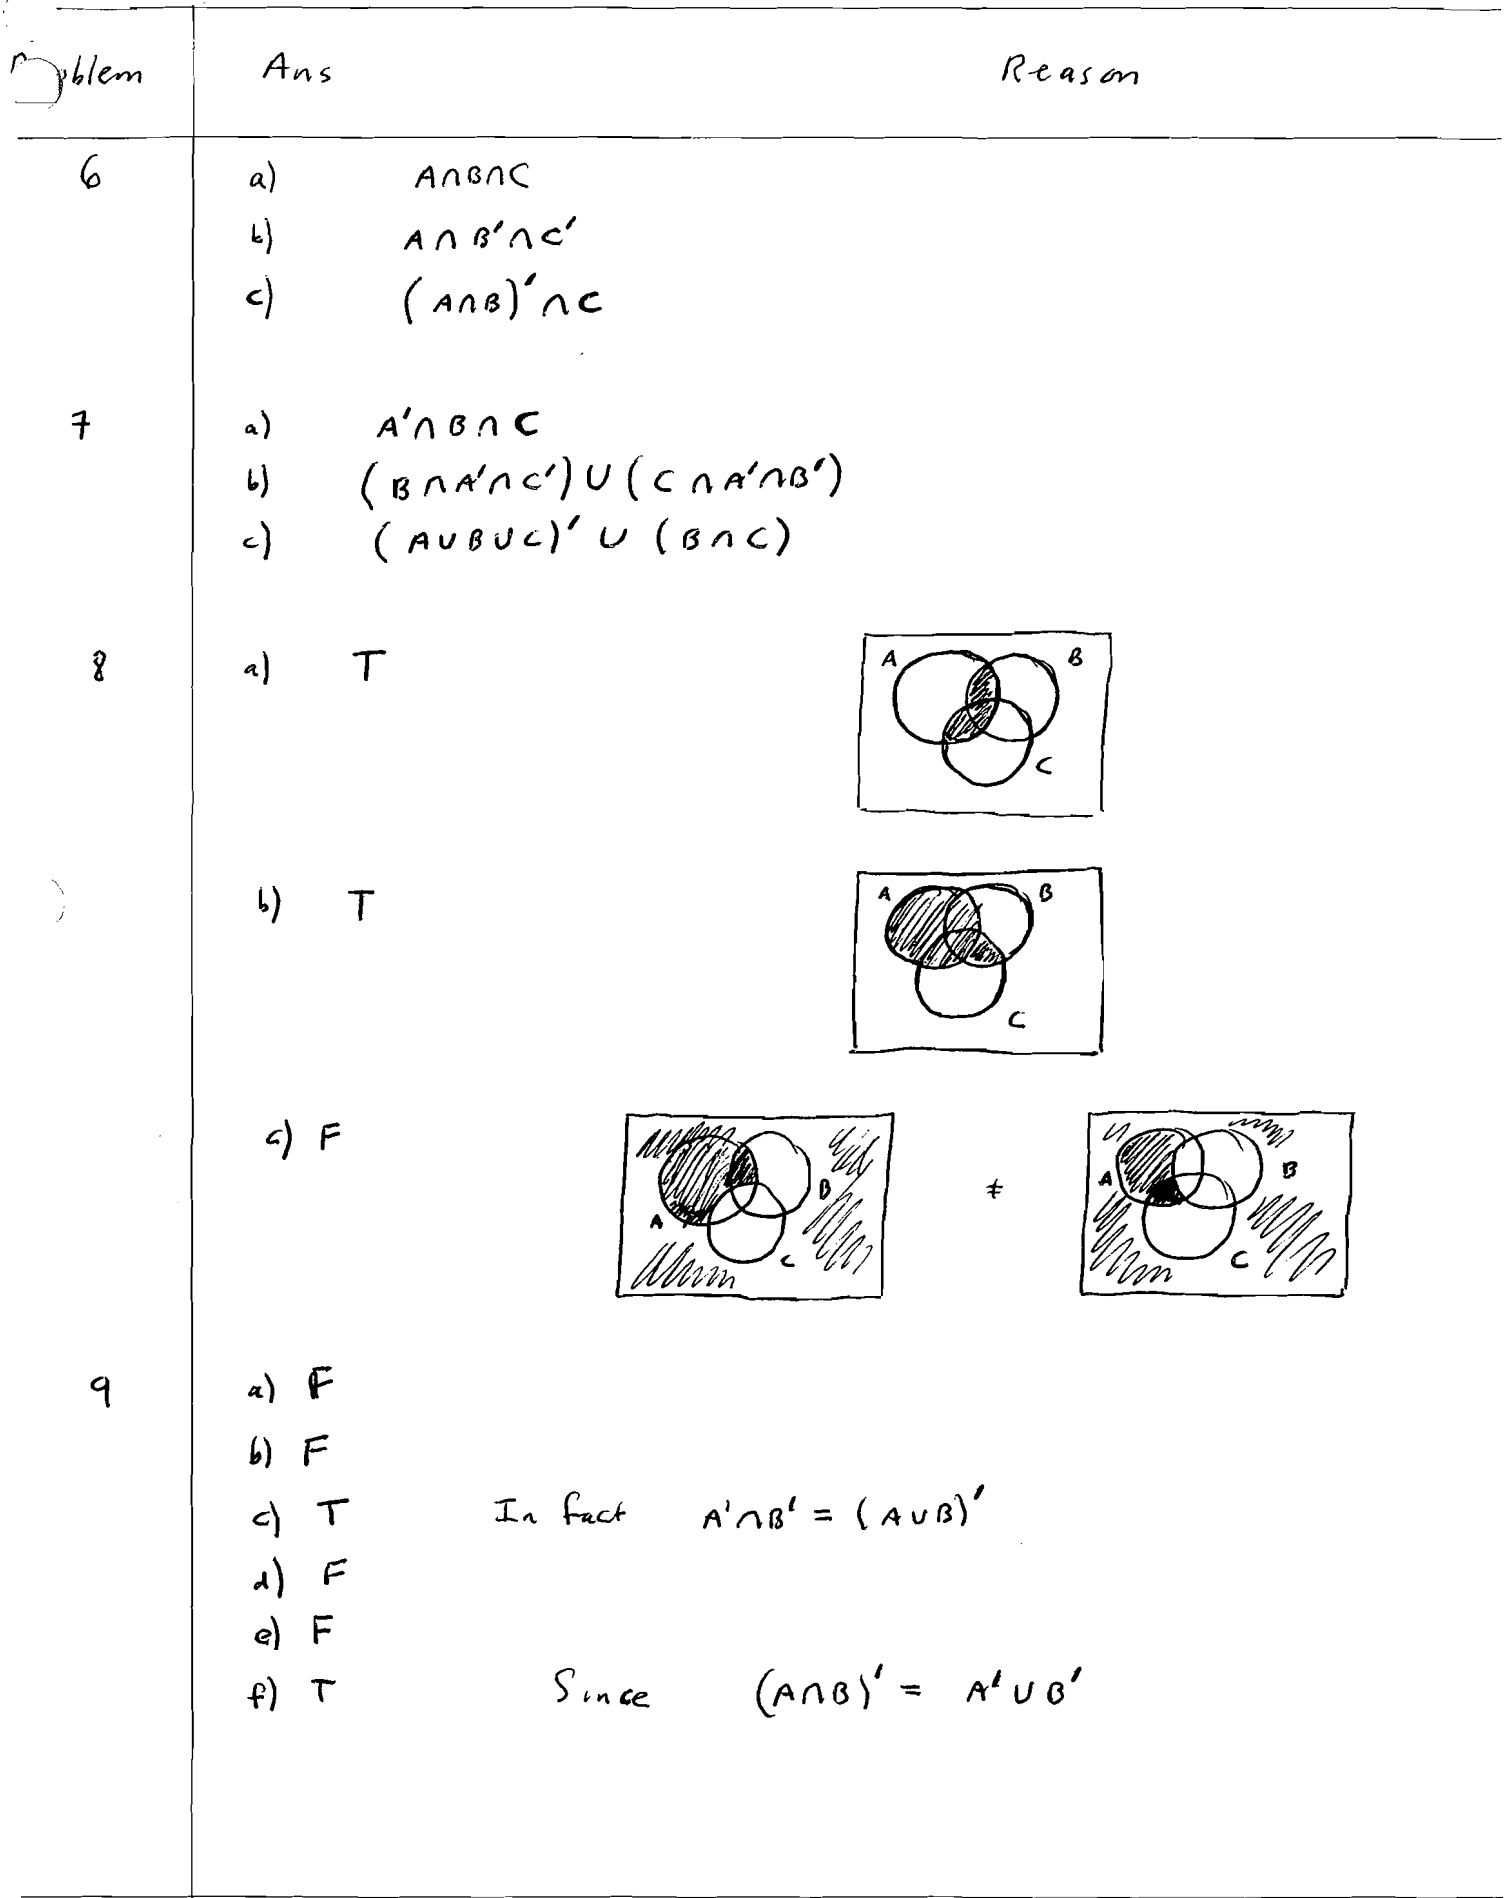 Problem Ans Reason
6 a) A∩B∩C
b) A∩B'∩C'
c) (A∩B)'∩C
7 a) A'∩B∩C
b) (B∩A'∩C')∪(C∩A'∩B')
c) (A∪B∪C)'∪(B∩C)
8 a) T
A B
C
b) T
A B
C
c) F
A B C ≠ A B C
9 a) F
b) F
c) T In fact A'∩B' = (A∪B)'
d) F
e) F
f) T Since (A∩B)' = A'∪B'